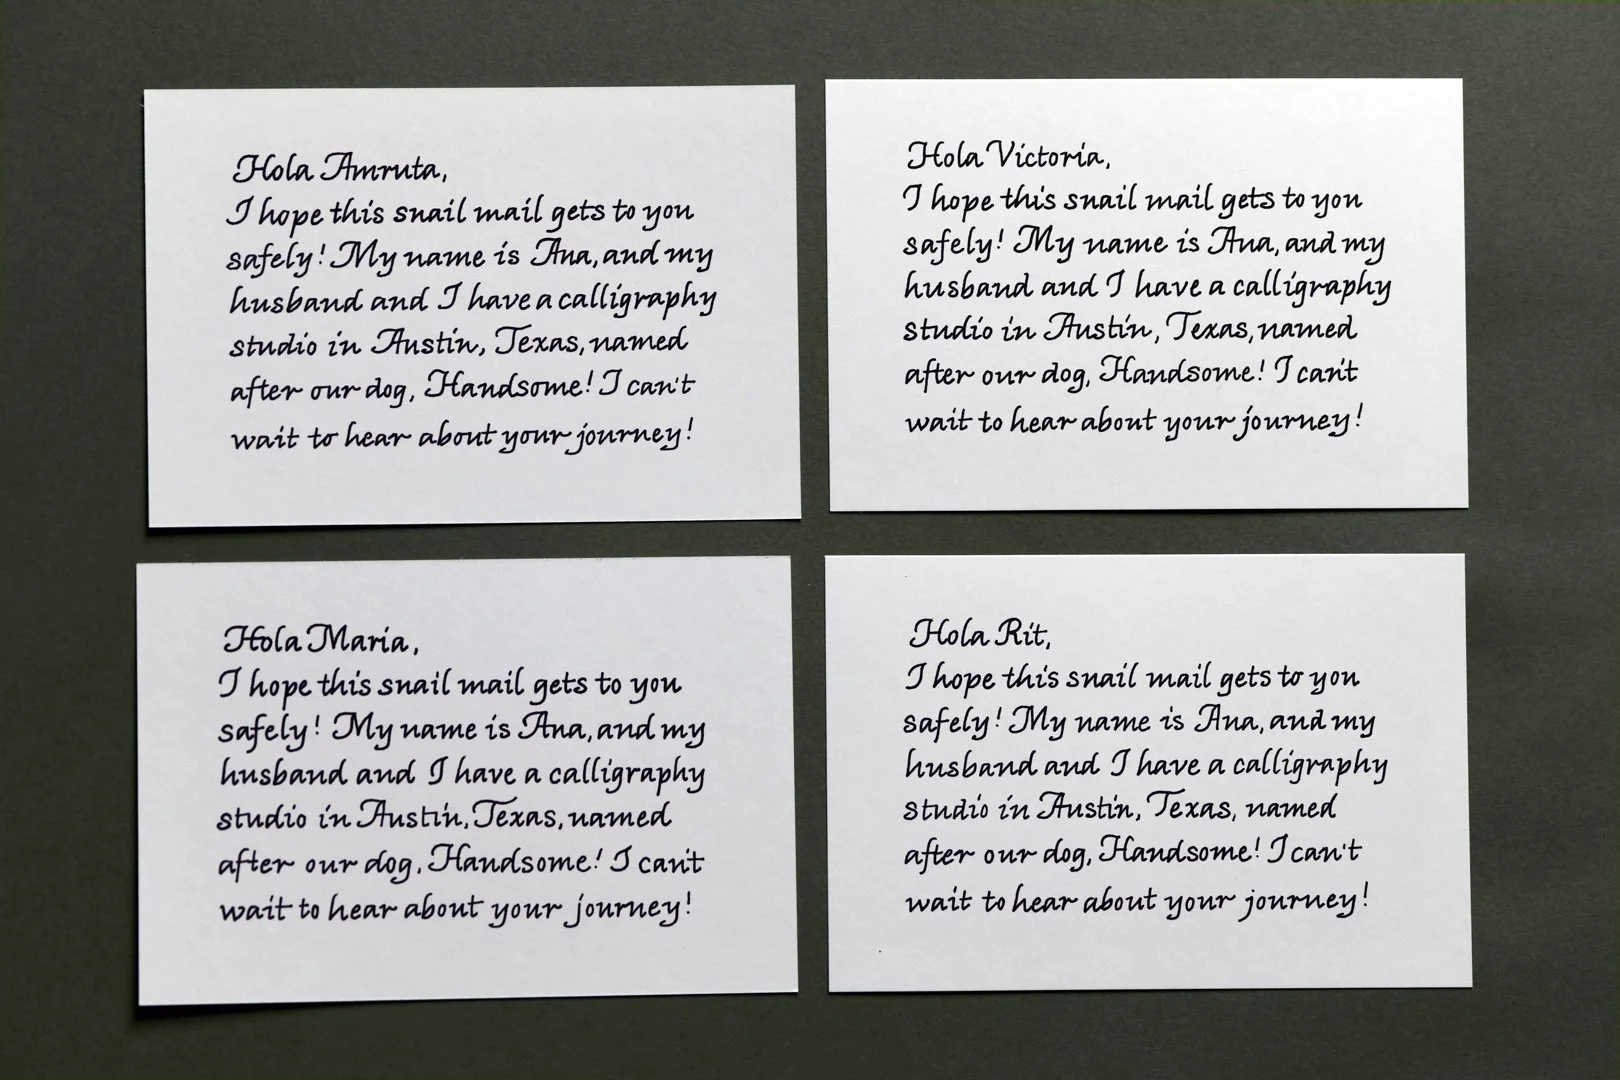 Hola Amruta,
I hope this snail mail gets to you
safely! My name is Ana, and my
husband and I have a calligraphy
studio in Austin, Texas, named
after our dog, Handsome! I can't
wait to hear about your journey!
Hola Victoria,
I hope this snail mail gets to you
safely! My name is Ana, and my
husband and I have a calligraphy
studio in Austin, Texas, named
after our dog, Handsome! I can't
wait to hear about your journey!
Hola Maria,
I hope this snail mail gets to you
safely! My name is Ana, and my
husband and I have a calligraphy
studio in Austin, Texas, named
after our dog, Handsome! I can't
wait to hear about your journey!
Hola Rit,
I hope this snail mail gets to you
safely! My name is Ana, and my
husband and I have a calligraphy
studio in Austin, Texas, named
after our dog, Handsome! I can't
wait to hear about your journey!